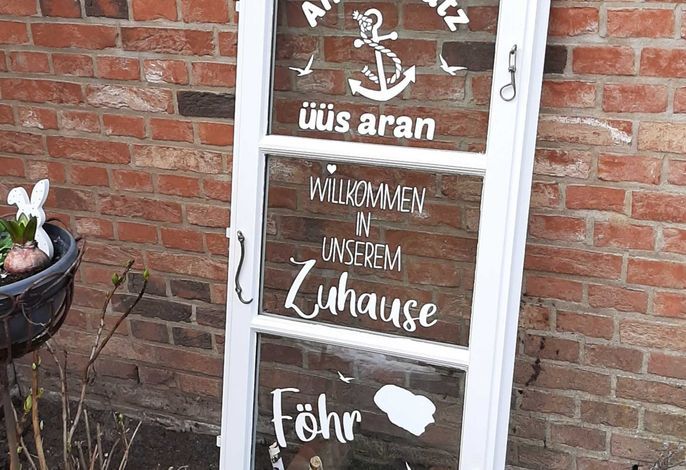 üüs aran
WILLKOMMEN
IN
UNSEREM
Zuhause
Föhr